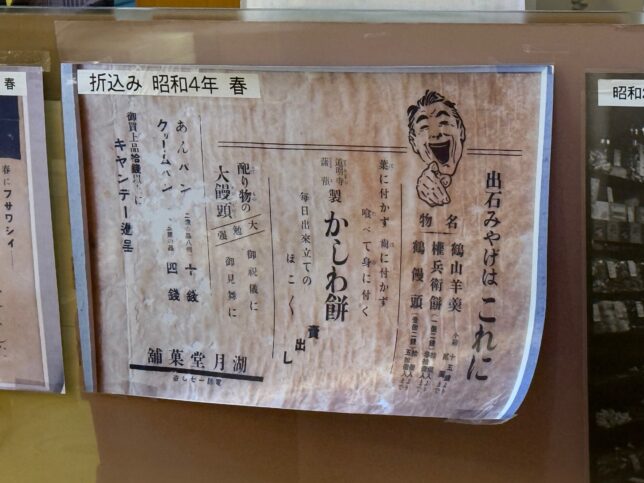 折込み 昭和4年 春
出石みやげは これに
名物
鶴山羊羹
權兵衛餅
鶴饅頭
葉に付かず 歯に付かず
喰べて身に付く
道明寺
製 かしわ餅
毎日出來立ての
ほこ〱 賣出し
配り物の
大饅頭
大勉強
御祝儀に
御見舞に
あんパン
クリームパン
十錢
四錢
御買上品拾錢
キャンデー進呈
湖月堂菓舗
春
春にフサワシイ
昭和